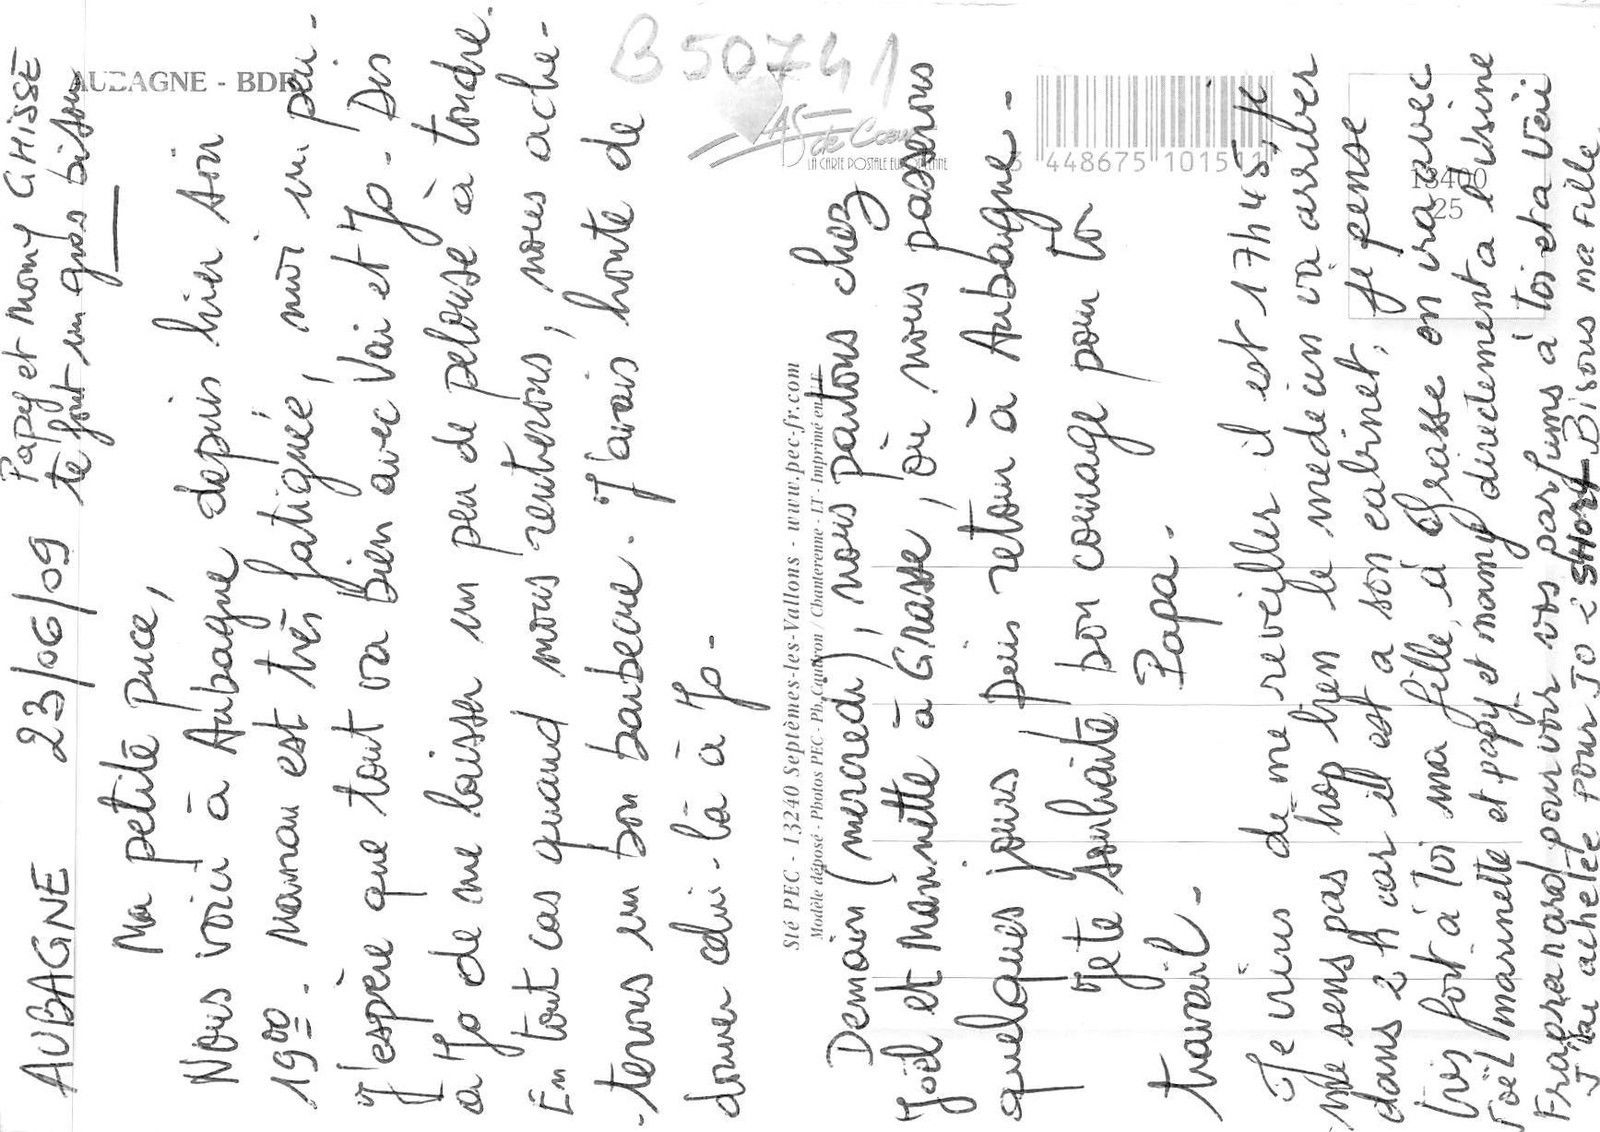 AUBAGNE 23/06/09 Papy et mamy GHISSE
te font un gros bisou
Ma petite puce,
Nous voici à Aubagne depuis hier soir
19 00. Maman est très fatiguée, moi un peu.
J'espère que tout va bien avec Vai et Jo. Dis
à Jo de me laisser un peu de pelouse à tondre.
En tout cas quand nous rentrerons, nous ache-
-terons un bon barbecue. J'avais honte de
donner celui-là à Jo.
Demain (mercredi), nous partons chez
Joël et Marinette à Grasse, où nous passerons
quelques jours puis retour à Aubagne.
Je te souhaite bon courage pour ton
travail. Papa.
Je viens de me reveiller il est 17h45, je
me sens pas trop bien le medecin va arriver
dans 2 h car il est a son cabinet, je pense
tres fort à toi ma fille, à Grasse on ira avec
Joël marinette et papy et mamy directement a l'usine
Fragranard pour voir vos parfums à toi et a Vai
J'ai achetée pour JO 1 short Bisous ma Fille
AUBAGNE - BDR
B50741
AS de Cœur
LA CARTE POSTALE EUROPÉENNE
3 448675 101511
13400
25
Sté PEC - 13240 Septèmes-les-Vallons - www.pec-fr.com
Modèle déposé - Photos PEC - Ph. / Chanterenne - LT - Imprimé en